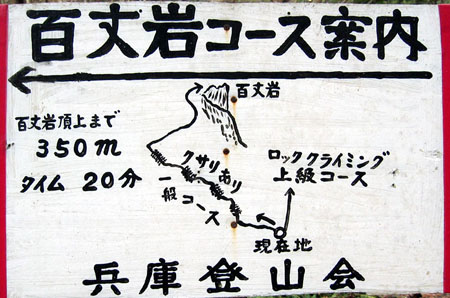 百丈岩コース案内
百丈岩
百丈岩頂上まで
350m
タイム 20分
クサリあり
一般コース
ロッククライミング
上級コース
現在地
兵庫登山会